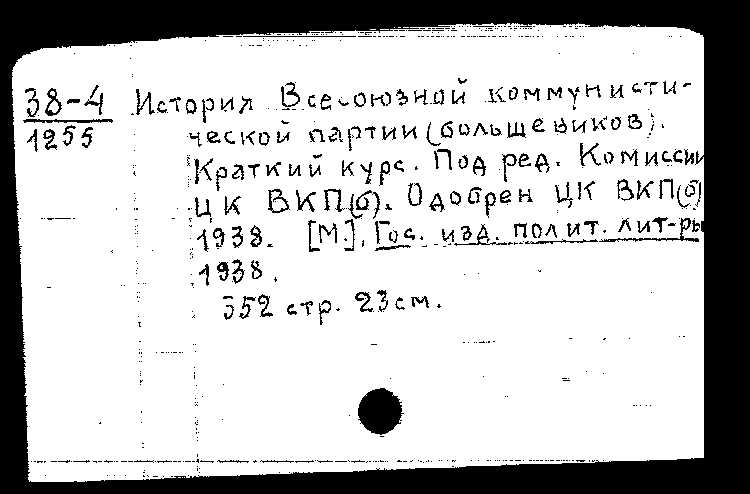 38-4 История Всесоюзной коммунисти-
1255 ческой партии (большевиков).
Краткий курс. Под ред. Комиссии
ЦК ВКП(б). Одобрен ЦК ВКП(б)
1938. [М.], Гос. изд. полит. лит-ры
1938.
352 стр. 23 см.